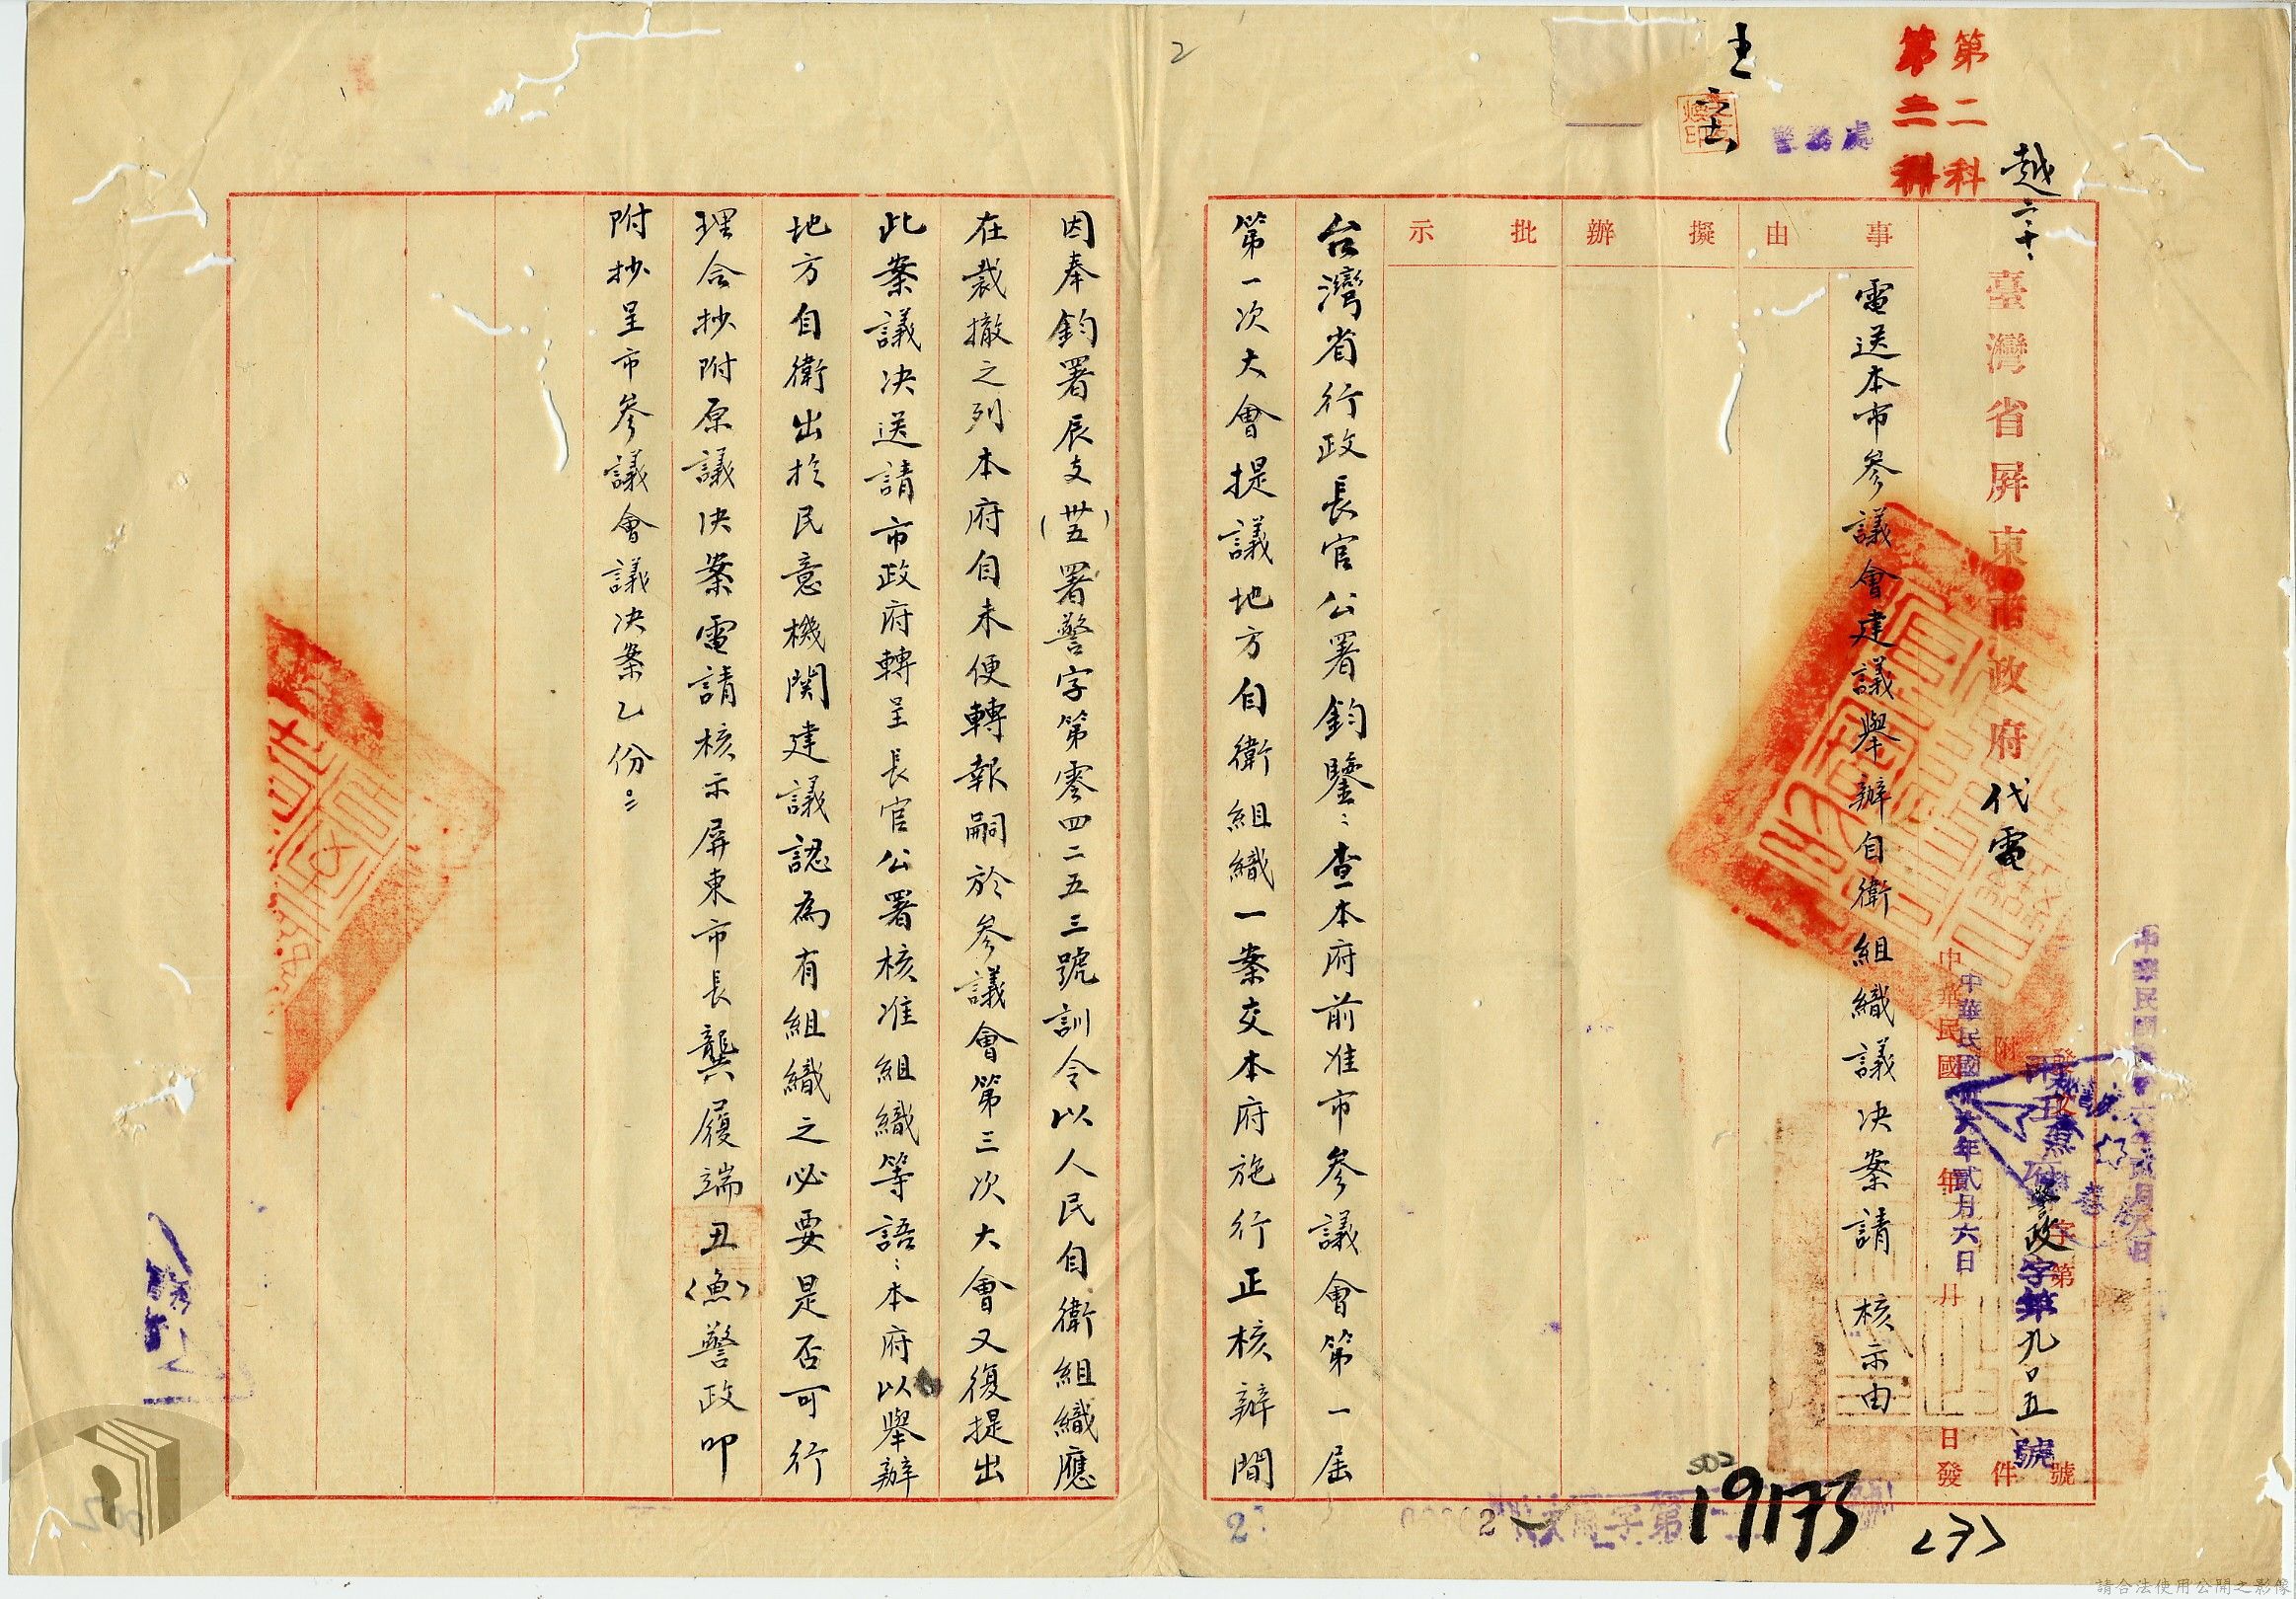 臺灣省屏東市政府代電
事由
擬辦
批示
電送本市參議會建議舉辦自衛組織議決案請 核示由
台灣省行政長官公署鈞鑒：查本府前准市參議會第一屆
第一次大會提議地方自衛組織一案交本府施行正核辦間
因奉鈞署辰支（卅五）署警字第零四二五三號訓令以人民自衛組織應
在裁撤之列本府自未便轉報嗣於參議會第三次大會又復提出
此案議決送請市政府轉呈長官公署核准組織等語：本府以舉辦
地方自衛出於民意機関建議認為有組織之必要是否可行
理合抄附原議決案電請核示屏東市長龔履端丑（魚）警政叩
附抄呈市參議會議決案乙份。
第二科
警務處
中華民國 年 月 日發
中華民國卅六年貳月六日
警政字第九0五號
附 件
19173
502
2
請合法使用公開之影像